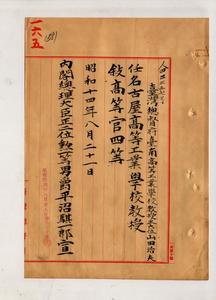 一六五
臺灣總督府臺南高等工業學校教授正六位山田浩夫
任名古屋高等工業學校教授
敍高等官四等
昭和十四年八月二十一日
內閣總理大臣正二位勳一等男爵平沼騏一郎宣